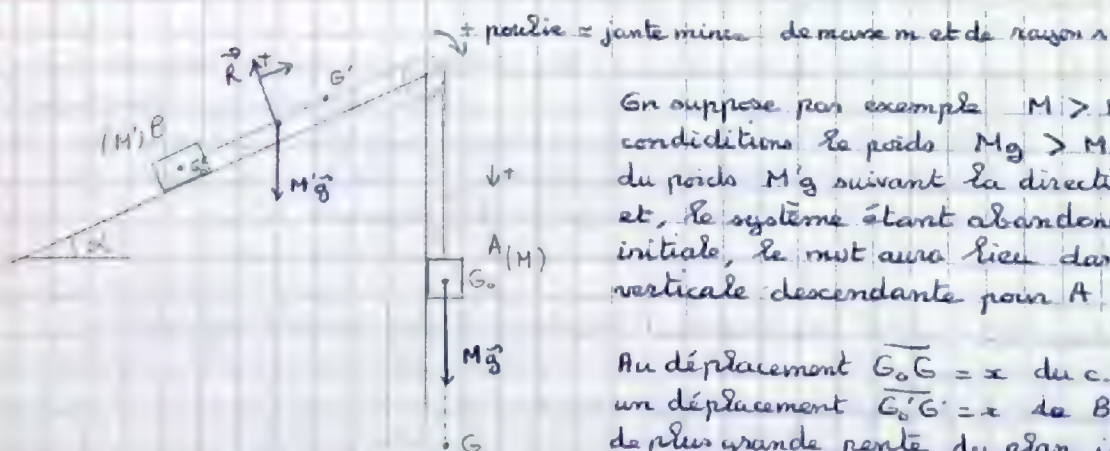 + poulie = jante mince de masse m et de rayon r
On suppose par exemple M >
condiditions le poids Mg > M
du poids M'g suivant la directi
et, le système étant abandon
initiale, le mvt aura lieu dan
verticale descendante pour A
Au déplacement G₀G = x du c.
un déplacement G₀'G' = x de B
de plus grande pente du plan i
R +
G'
(M') B
G₀'
M'g
α
↓+
A (M)
G₀
Mg
G